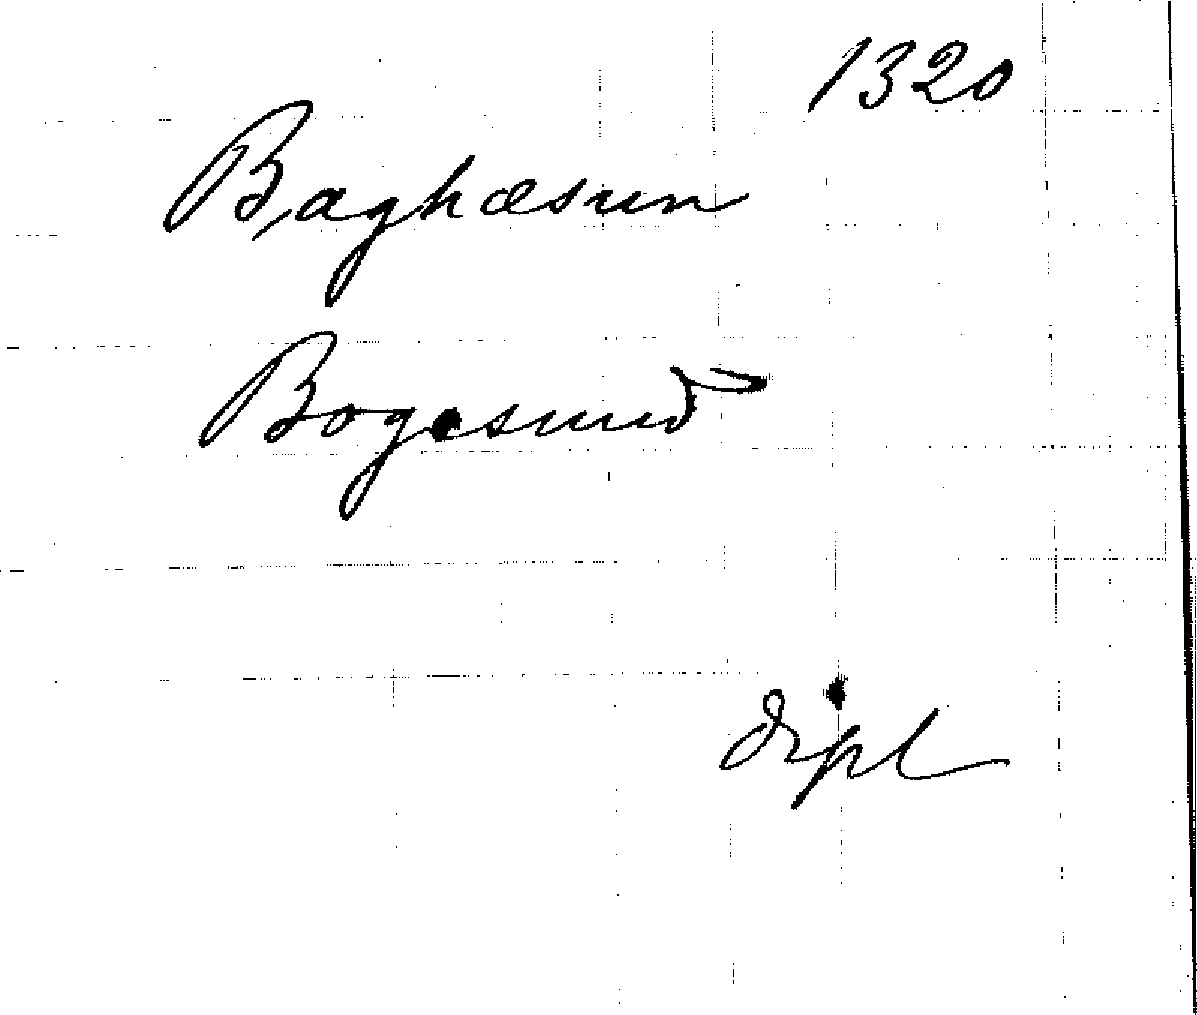 1320
Baghæsun
Bogesund
dipl